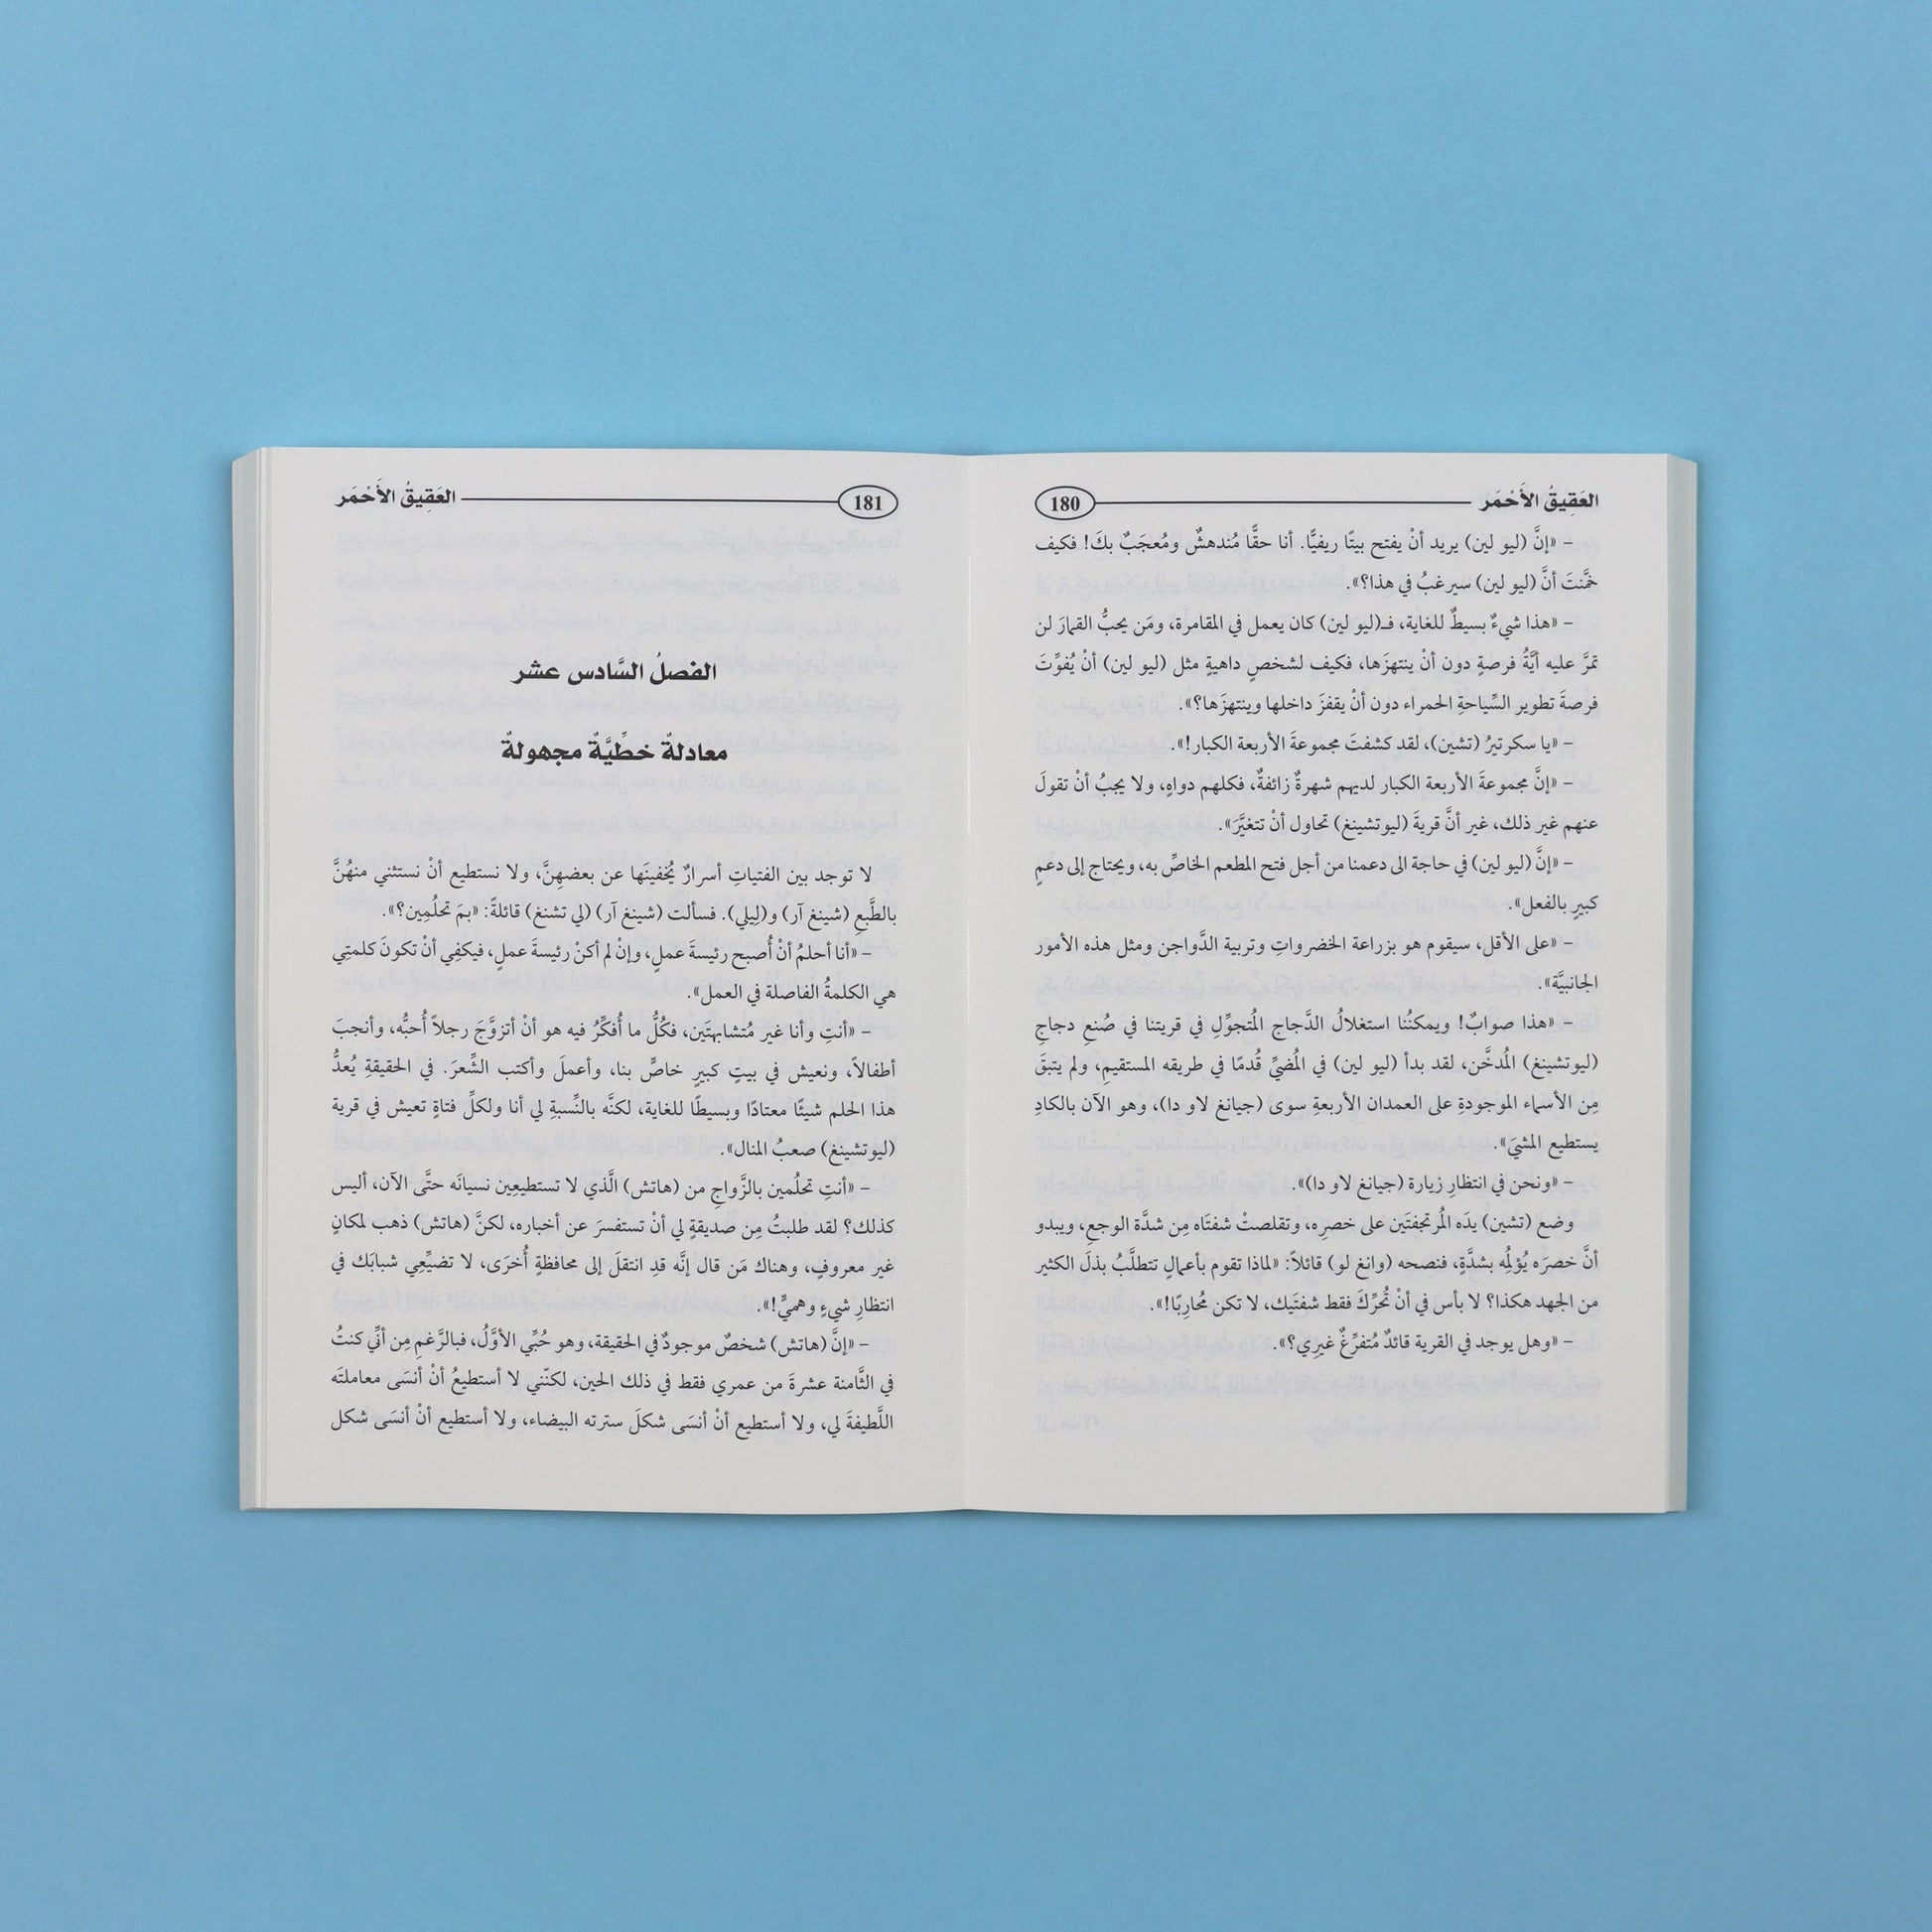 العَقِيقُ الأَحْمَر 180
– «إنَّ (ليو لين) يريد أنْ يفتح بيتًا ريفيًّا. أنا حقًّا مُندهشٌ ومُعجَبٌ بكَ! فكيف
خمَّنتَ أنَّ (ليو لين) سيرغبُ في هذا؟».
– «هذا شيءٌ بسيطٌ للغاية، فـ(ليو لين) كان يعمل في المقامرة، ومَن يحبُّ القمارَ لن
تمرَّ عليه أيَّةُ فرصةٍ دون أنْ ينتهزَها، فكيف لشخصٍ داهيةٍ مثل (ليو لين) أنْ يُفوِّتَ
فرصةَ تطوير السِّياحةِ الحمراء دون أنْ يقفزَ داخلها وينتهزَها؟».
– «يا سكرتيرُ (تشين)، لقد كشفتَ مجموعةَ الأربعة الكبار!».
– «إنَّ مجموعةَ الأربعة الكبار لديهم شهرةٌ زائفةٌ، فكلهم دواهٍ، ولا يجبُ أنْ تقولَ
عنهم غير ذلك، غير أنَّ قريةَ (ليوتشينغ) تحاول أنْ تتغيَّرَ».
– «إنَّ (ليو لين) في حاجة الى دعمنا من أجل فتح المطعم الخاصِّ به، ويحتاج إلى دعمٍ
كبيرٍ بالفعل».
– «على الأقل، سيقوم هو بزراعة الخضرواتِ وتربية الدَّواجن ومثل هذه الأمور
الجانبيَّة».
– «هذا صوابٌ! ويمكنُنا استغلالُ الدَّجاج المُتجوِّلِ في قريتنا في صُنعِ دجاجِ
(ليوتشينغ) المُدخَّن، لقد بدأ (ليو لين) في المُضيِّ قُدمًا في طريقه المستقيمِ، ولم يتبقَ
مِن الأسماء الموجودةِ على العمدان الأربعةِ سوى (جيانغ لاو دا)، وهو الآن بالكادِ
يستطيع المشيَ».
– «ونحن في انتظارِ زيارة (جيانغ لاو دا)».
وضع (تشين) يدَه المُرتجفتَين على خصرِه، وتقلصتْ شفتَاه مِن شدَّة الوجعِ، ويبدو
أنَّ خصرَه يُؤلُمِه بشدَّةٍ، فنصحه (وانغ لو) قائلاً: «لماذا تقوم بأعمالٍ تتطلَّبُ بذلَ الكثير
من الجهد هكذا؟ لا بأس في أنْ تُحرِّكَ فقط شفتَيك، لا تكن مُحارِبًا!».
– «وهل يوجد في القرية قائدٌ مُتفرِّغٌ غيرِي؟».
181 العَقِيقُ الأَحْمَر
الفصلُ السَّادس عشر
معادلةٌ خطِّيَّةٌ مجهولةٌ
لا توجد بين الفتياتِ أسرارٌ يُخفينَها عن بعضهِنَّ، ولا نستطيع أنْ نستثني منهُنَّ
بالطَّبعِ (شينغ آر) و(لِيلي). فسألت (شينغ آر) (لي تشنغ) قائلةً: «بمَ تحلُمِين؟».
– «أنا أحلمُ أنْ أُصبح رئيسةَ عملٍ، وإنْ لم أكنْ رئيسةَ عملٍ، فيكفِي أنْ تكونَ كلمتِي
هي الكلمةُ الفاصلة في العمل».
– «أنتِ وأنا غير مُتشابهتَين، فكُلُّ ما أُفكِّرُ فيه هو أنْ أتزوَّجَ رجلاً أُحبُّه، وأنجبَ
أطفالاً، ونعيش في بيتٍ كبيرٍ خاصٍّ بنا، وأعملَ وأكتب الشِّعرَ. في الحقيقةِ يُعدُّ
هذا الحلم شيئًا معتادًا وبسيطًا للغاية، لكنَّه بالنِّسبةِ لي أنا ولكلِّ فتاةٍ تعيش في قرية
(ليوتشينغ) صعبُ المنال».
– «أنتِ تحلُمين بالزَّواجِ من (هاتش) الَّذي لا تستطيعِين نسيانَه حتَّى الآن، أليس
كذلك؟ لقد طلبتُ مِن صديقةٍ لي أنْ تستفسرَ عن أخباره، لكنَّ (هاتش) ذهب لمكانٍ
غير معروفٍ، وهناك مَن قال إنَّه قدِ انتقلَ إلى محافظةٍ أُخرَى، لا تضيِّعِي شبابَك في
انتظارِ شيءٍ وهميٍّ!».
– «إنَّ (هاتش) شخصٌ موجودٌ في الحقيقة، وهو حُبِّي الأوَّلُ، فبالرَّغمِ مِن أنِّي كنتُ
في الثَّامنة عشرةَ من عمري فقط في ذلك الحين، لكنّني لا أستطيعُ أنْ أنسَى معاملتَه
اللَّطيفةَ لي، ولا أستطيع أنْ أنسَى شكلَ سترته البيضاء، ولا أستطيع أنْ أنسَى شكل